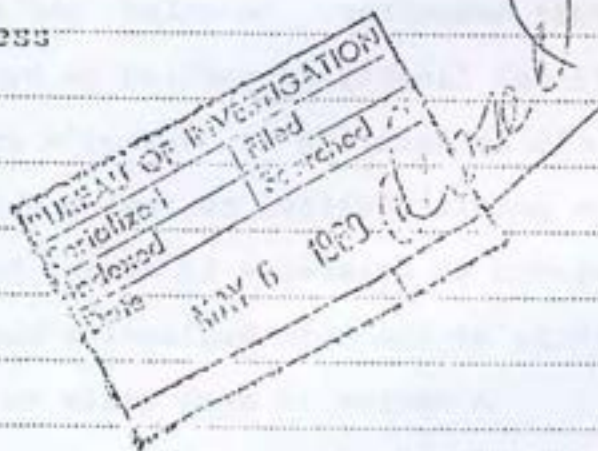 ess
BUREAU OF INVESTIGATION
Serialized Filed
Indexed Searched
Date MAY 6 1980